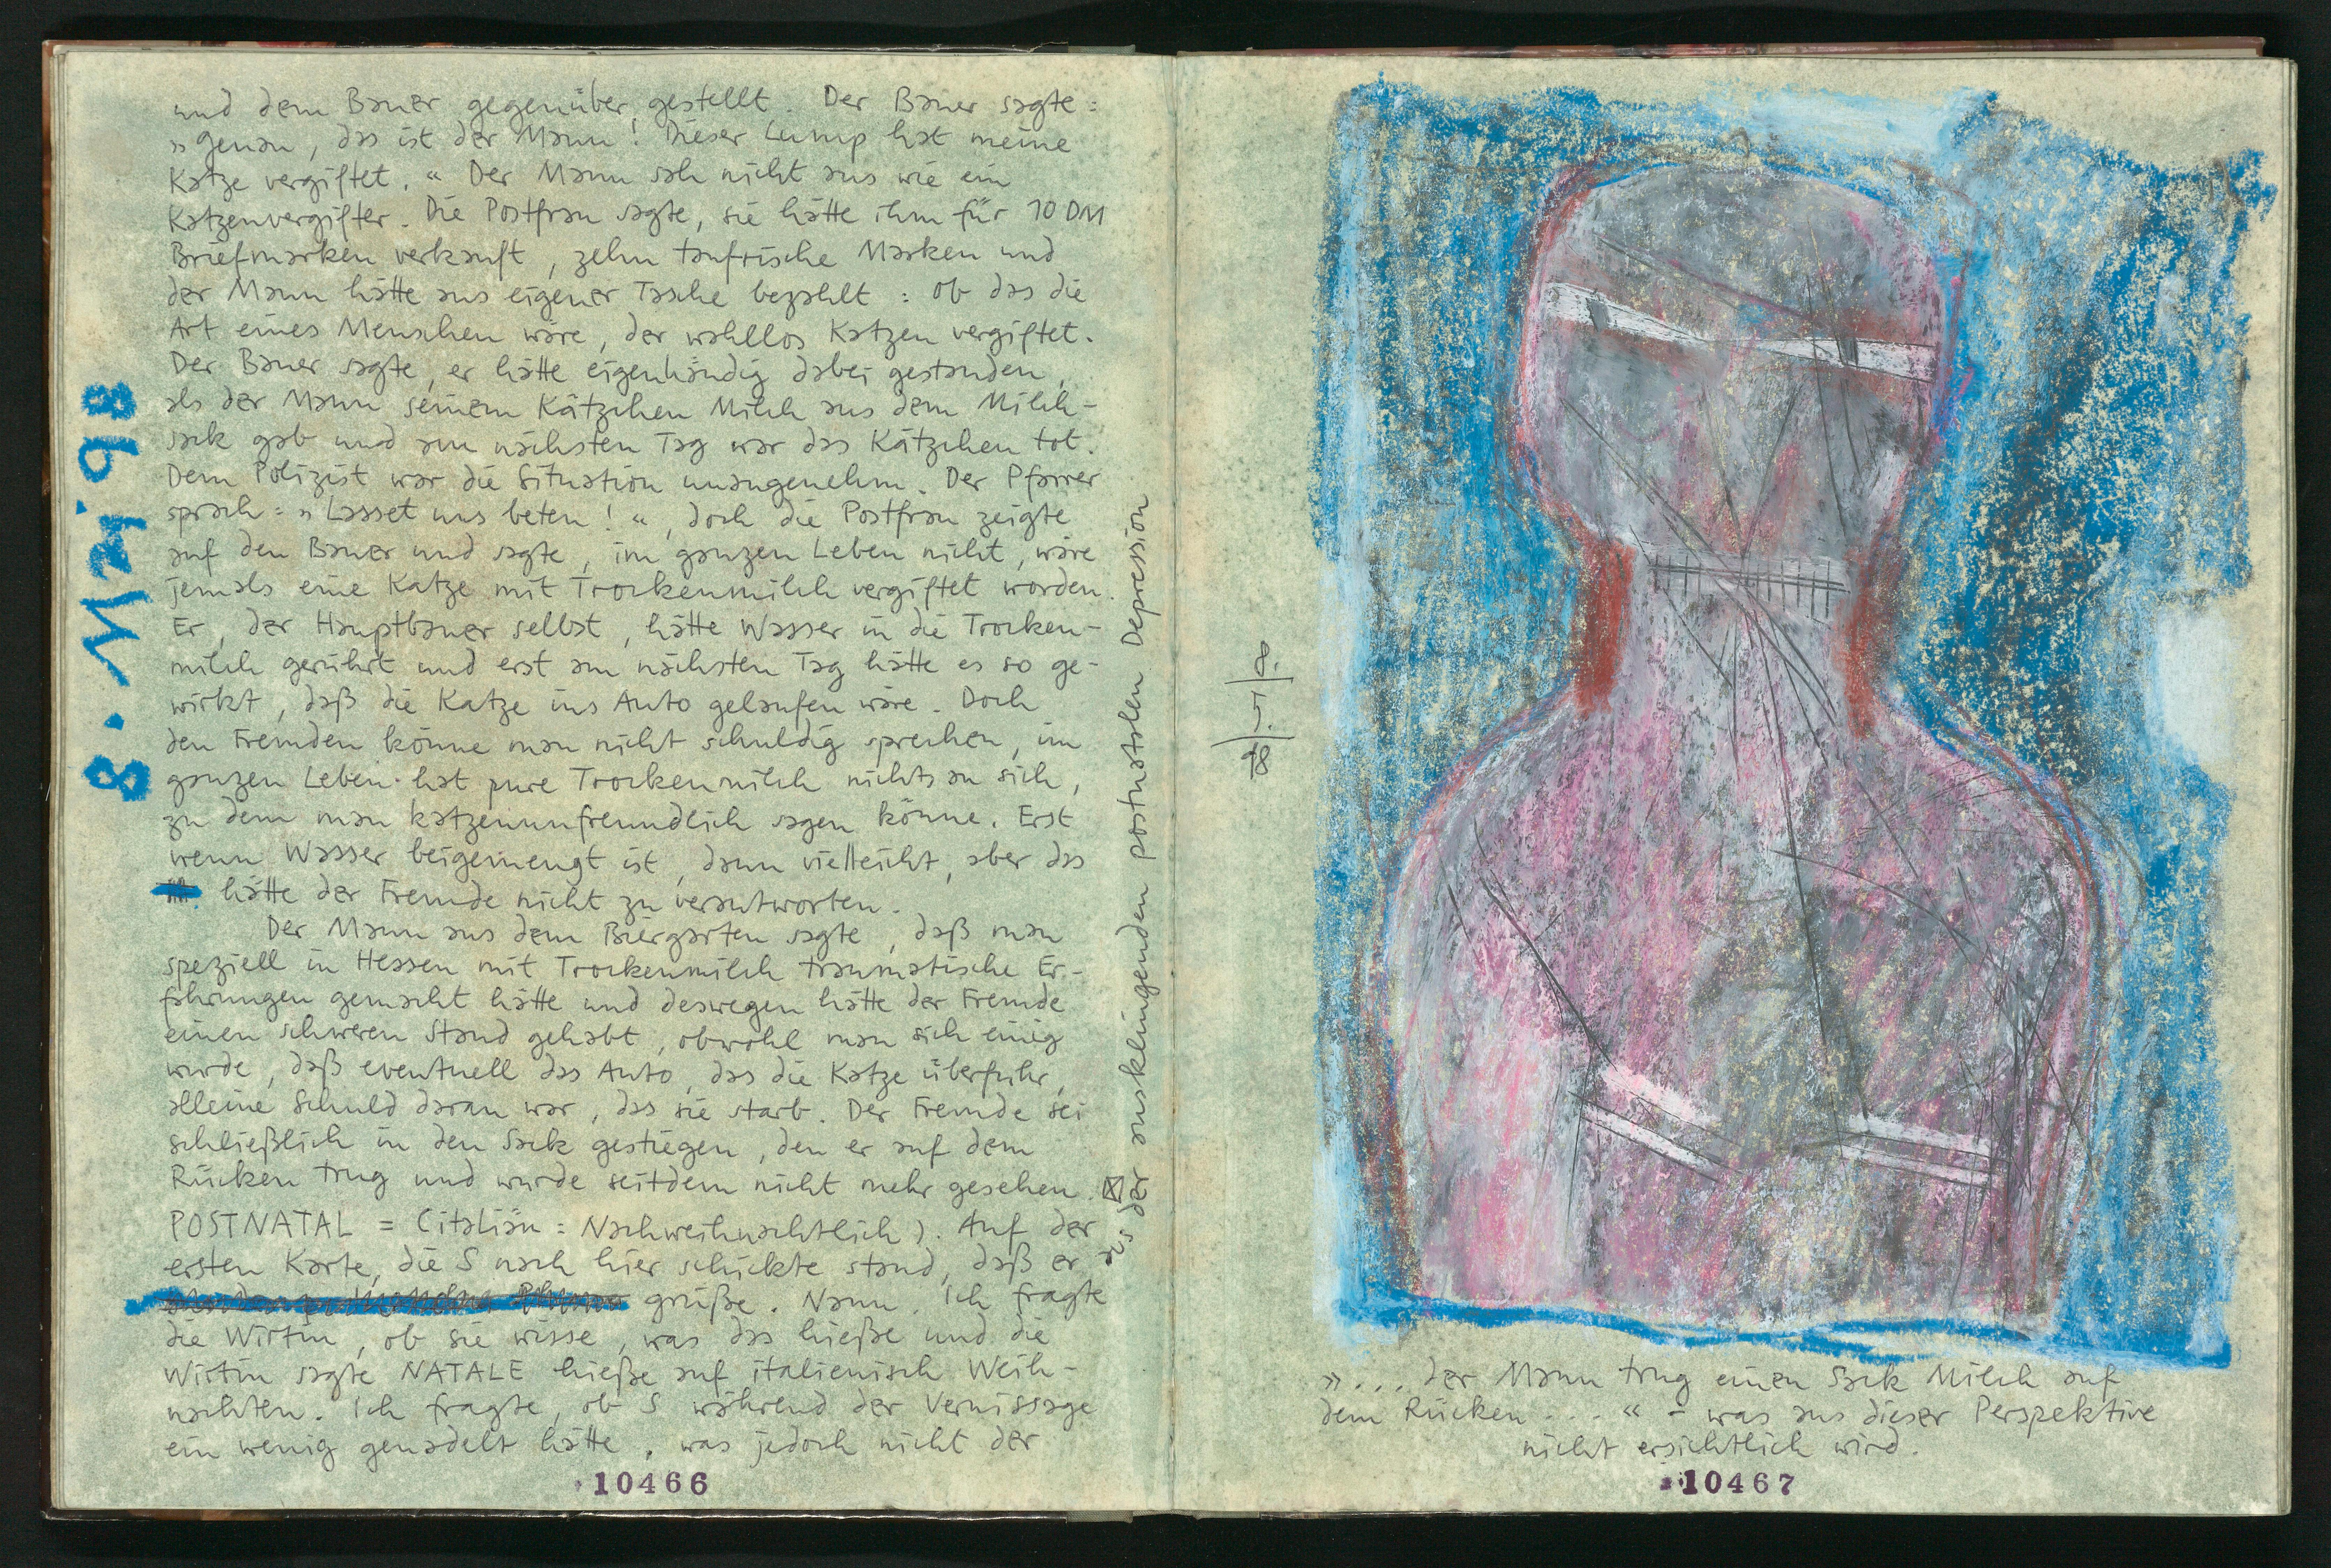 8. Mai 98
und dem Bauer gegenüber gestellt. Der Bauer sagte:
»Genau, das ist der Mann! Dieser Lump hat meine
Katze vergiftet.« Der Mann sah nicht aus wie ein
Katzenvergifter. Die Postfrau sagte, sie hätte ihm für 10 DM
Briefmarken verkauft, zehn taufrische Marken und
der Mann hätte aus eigener Tasche bezahlt: ob das die
Art eines Menschen wäre, der wahllos Katzen vergiftet.
Der Bauer sagte, er hätte eigenhändig dabei gestanden,
als der Mann seinem Kätzchen Milch aus dem Milch-
sack gab und am nächsten Tag war das Kätzchen tot.
Dem Polizist war die Situation unangenehm. Der Pfarrer
sprach: »Lasset uns beten!«, doch die Postfrau zeigte
auf den Bauer und sagte, im ganzen Leben nicht, wäre
jemals eine Katze mit Trockenmilch vergiftet worden.
Er, der Hauptbauer selbst, hätte Wasser in die Trocken-
milch gerührt und erst am nächsten Tag hätte es so ge-
wirkt, daß die Katze ins Auto gelaufen wäre. Doch
den Fremden könne man nicht schuldig sprechen, im
ganzen Leben hat pure Trockenmilch nichts an sich,
zu dem man katzenunfreundlich sagen könne. Erst
wenn Wasser beigemengt ist, dann vielleicht, aber das
hätte der Fremde nicht zu verantworten.
Der Mann aus dem Biergarten sagte, daß man
speziell in Hessen mit Trockenmilch traumatische Er-
fahrungen gemacht hätte und deswegen hätte der Fremde
einen schweren Stand gehabt, obwohl man sich einig
wurde, daß eventuell das Auto, das die Katze überfuhr,
alleine Schuld daran war, das sie starb. Der Fremde sei
schließlich in den Sack gestiegen, den er auf dem
Rücken trug und wurde seitdem nicht mehr gesehen.
POSTNATAL = (italiän: Nachweihnachtlich). Auf der
ersten Karte, die S nach hier schickte stand, daß er
grüße. Nann. Ich fragte
die Wirtin, ob sie wisse, was das hieße und die
Wirtin sagte NATALE hieße auf italienisch Weih-
nachten. Ich fragte, ob S während der Vernissage
ein wenig genadelt hätte, was jedoch nicht der
aus der ausklingenden postnatalen Depression
10466
8.
5.
98
»... der Mann trug einen Sack Milch auf
dem Rücken ...« – was aus dieser Perspektive
nicht ersichtlich wird.
10467